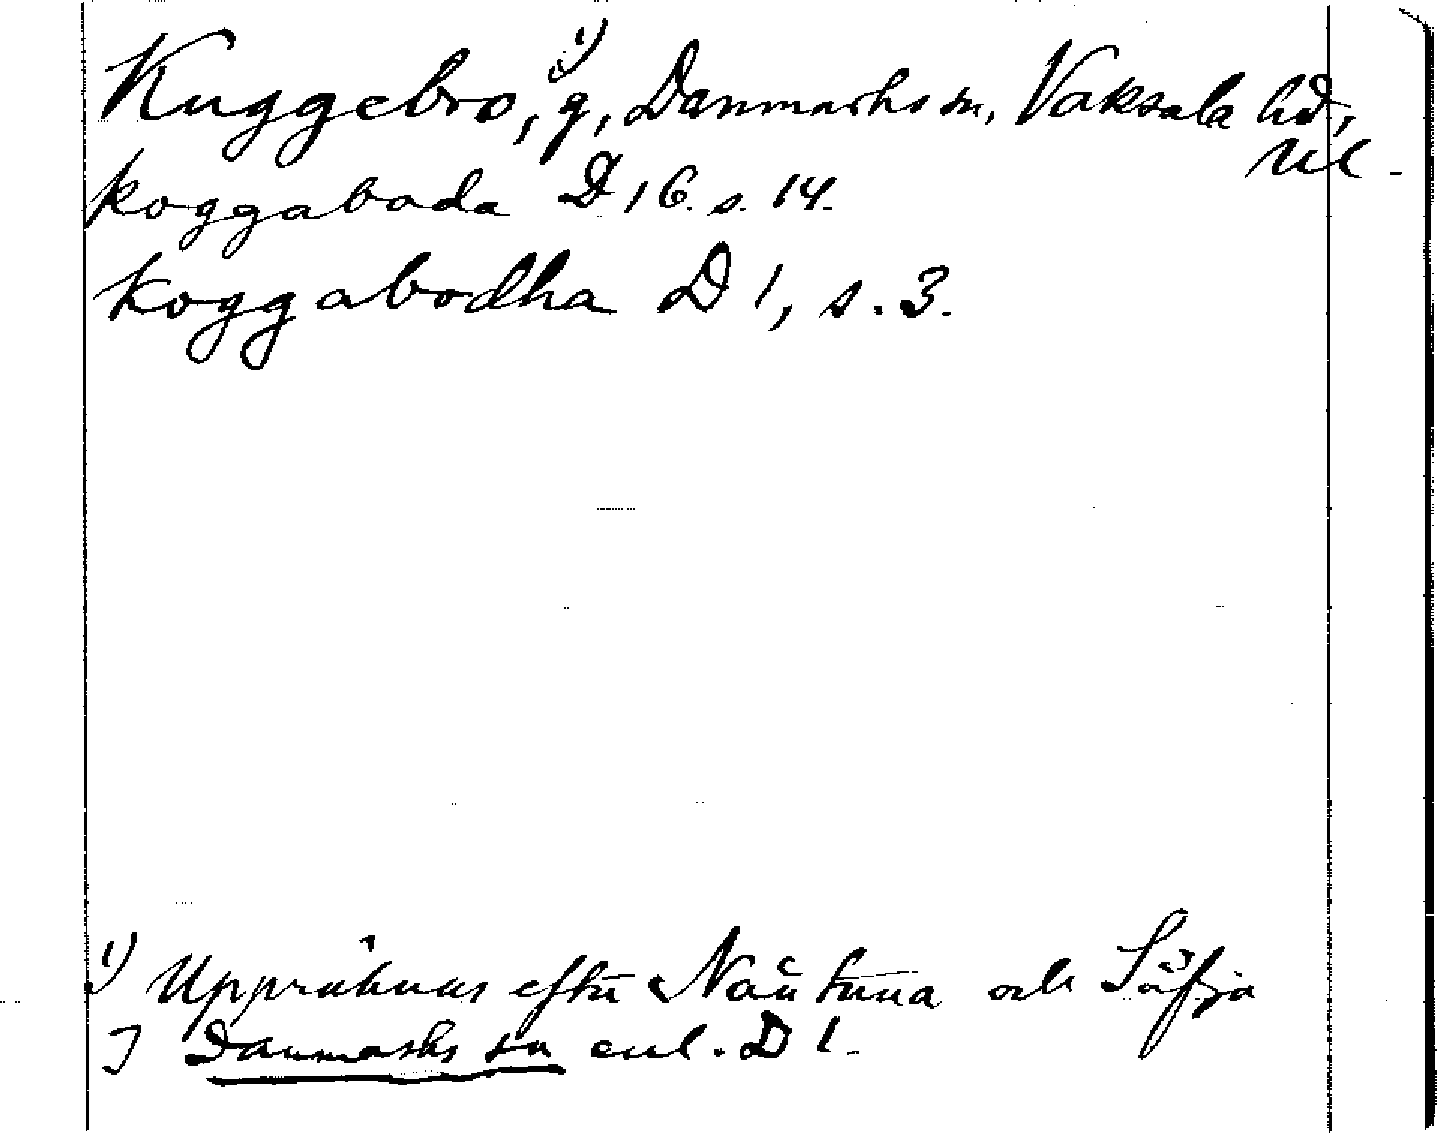 Kuggebro,¹⁾ g, Danmarks sn, Vaksala hd,
Ul.
koggaboda D 16. s. 14.
koggabodha D 1, s. 3.
¹⁾ Uppräknas efter Nåntuna och Säfja
i Danmarks sn enl. D 1.